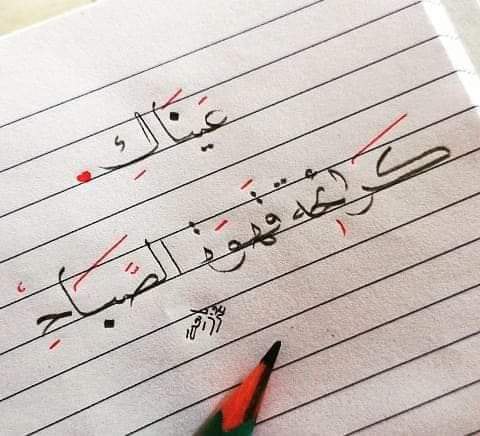 عَينَاكِ
كَرائِحة قَهوة الصَّبَاحِ